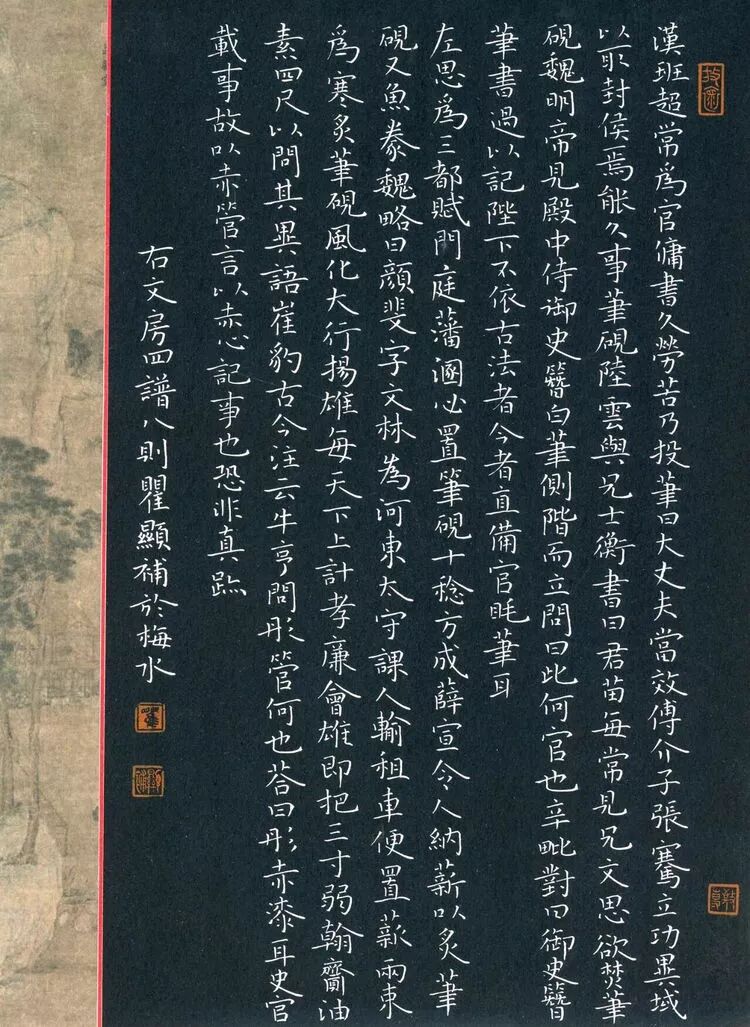 漢班超常爲官傭書久勞苦乃投筆曰大丈夫當效傅介子張騫立功異域
以取封侯焉能久事筆硯陸雲與兄士衡書曰君苗每常見兄文思欲焚筆
硯魏明帝見殿中侍御史簪白筆側階而立問曰此何官也辛毗對曰御史簪
筆書過以記陛下不依古法者今者直備官眊筆耳
左思爲三都賦門庭藩溷必置筆硯十稔方成薛宣令人納薪以炙筆
硯又魚豢魏略曰顔斐字文林為河東太守課人輸租車便置薪兩束
爲寒炙筆硯風化大行揚雄每天下上計孝廉會雄即把三寸弱翰齎油
素四尺以問其異語崔豹古今注云牛亨問彤管何也答曰彤赤漆耳史官
載事故以赤管言以赤心記事也恐非真跡
右文房四譜八則瞿顯補於梅水